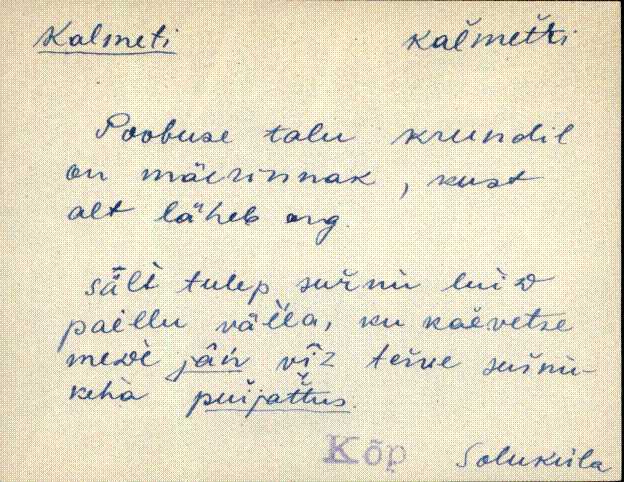 Kalmeti kal̆metti
Poobuse talu krundil
on mäerinnak, kust
alt läheb org.
sält tulep surnu luid
paellu välla, ku kaevetse
mede jàn viz teise surnu-
keha puijattus.
Kõp Soluküla